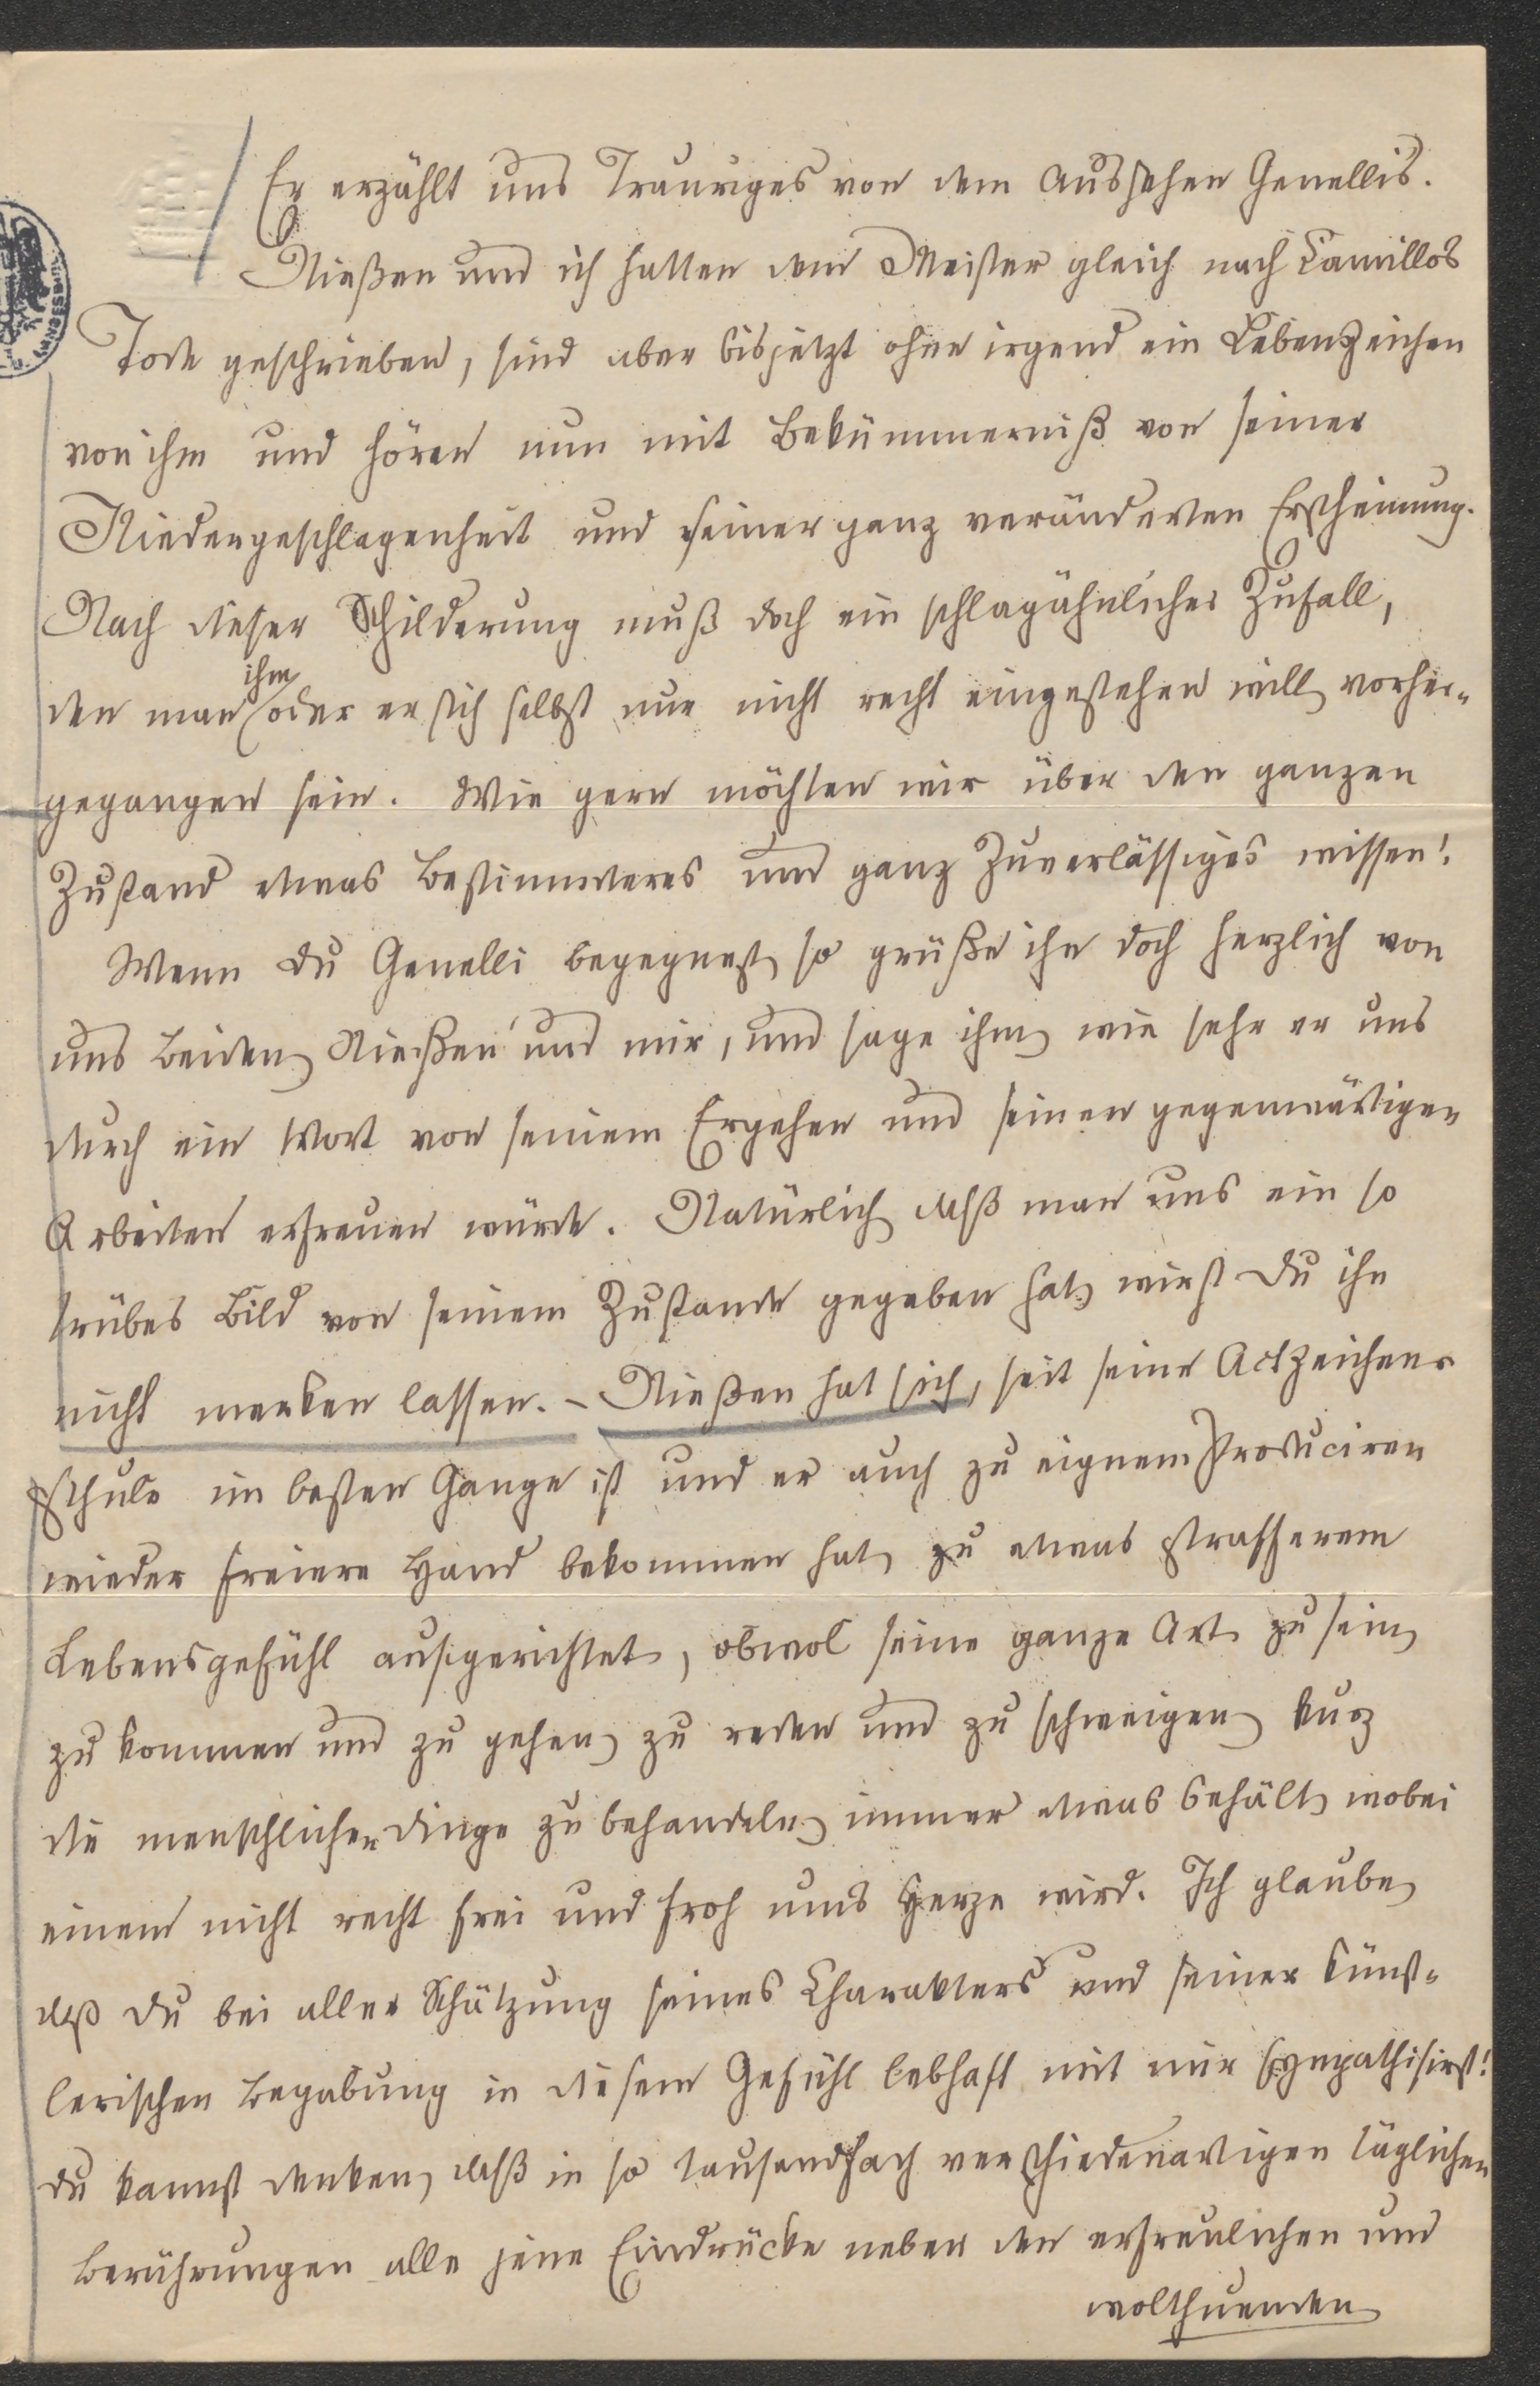 Er erzählt uns Trauriges von dem Aussehen Genellis.
Nießen und ich hatten dem Meister gleich nach Camillos
Tode geschrieben, sind aber bisjetzt ohne irgend ein Lebenszeichen
von ihm und hören nun mit Bekümmerniß von seiner
Niedergeschlagenheit und seiner ganz veränderten Erscheinung.
Nach dieser Schilderung muß doch ein schlagähnlicher Zufall,
ihm
den man oder er sich selbst nur nicht recht eingestehen will, vorher-
gegangen sein. Wie gern möchten wir über den ganzen
Zustand etwas Bestimmteres und ganz Zuverlässiges wissen!
Wenn Du Genelli begegnest, so grüße ihn doch herzlich von
uns Beiden, Nießen und mir, und sage ihm, wie sehr er uns
durch ein Wort von seinem Ergehen und seinen gegenwärtigen
Arbeiten erfreuen würde. Natürlich, daß man uns ein so
trübes Bild von seinem Zustande gegeben hat, wirst Du ihn
nicht merken lassen. – Nießen hat sich, seit seine Actzeichen
schule im besten Gange ist und er auch zu eignem Produciren
wieder freiere Hand bekommen hat, zu etwas strafferem
Lebensgefühl aufgerichtet, obwol seine ganze Art zu sein,
zu kommen und zu gehen, zu reden und zu schweigen, kurz
die menschlichen Dinge zu behandeln, immer etwas behält, wobei
einem nicht recht frei und froh ums Herze wird. Ich glaube,
daß Du bei aller Schätzung seines Charakters und seiner künst-
lerischen Begabung in diesem Gefühl lebhaft mit mir sympathisirst!
Du kannst denken, daß in so tausendfach verschiedenartigen täglichen
Berührungen alle jene Eindrücke neben den erfreulichen und
wolthuenden